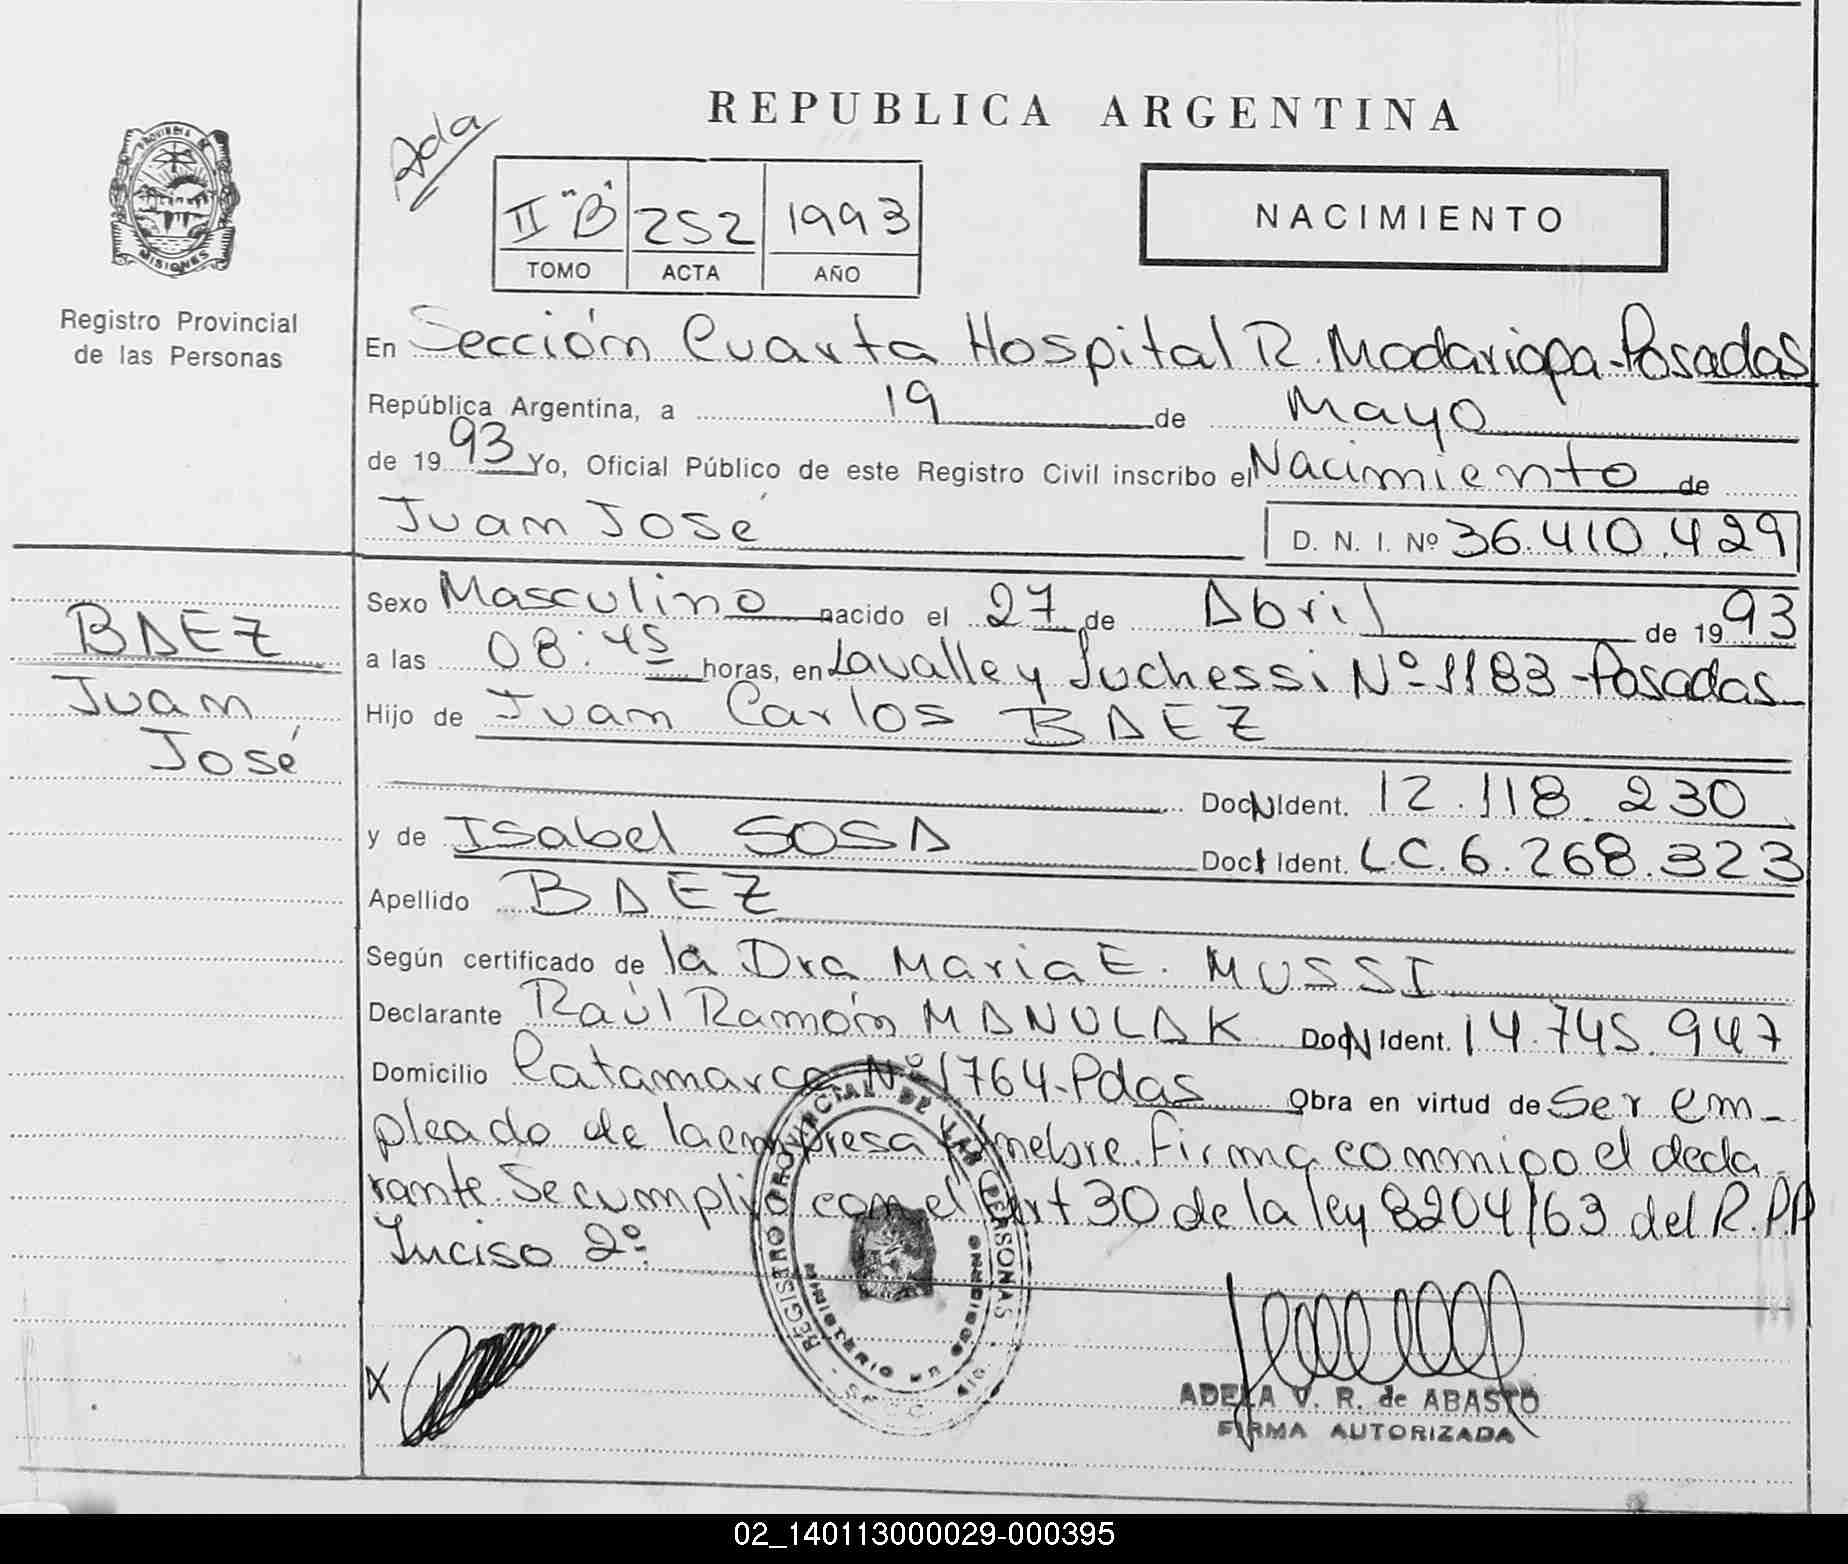 REPUBLICA ARGENTINA
Ada
PROVINCIA DE
MISIONES
Registro Provincial
de las Personas
II "B" 252 1993
TOMO ACTA AÑO
NACIMIENTO
En Sección Cuarta Hospital R. Madariaga-Posadas
República Argentina, a 19 de Mayo
de 1993 Yo, Oficial Público de este Registro Civil inscribo el Nacimiento de
Juan José
D. N. I. Nº 36.410.429
BAEZ
Juan
José
Sexo Masculino nacido el 27 de Abril de 1993
a las 08:45 horas, en Lavalle y Luchessi Nº 1183-Posadas
Hijo de Juan Carlos BAEZ
Doc N Ident. 12.118.230
y de Isabel SOSA Doc Ident. L.C. 6.268.323
Apellido BAEZ
Según certificado de la Dra Maria E. MUSSI
Declarante Raúl Ramón MANULAK Doc N Ident. 14.745.947
Domicilio Catamarca Nº 1764-Pdas Obra en virtud de Ser em-
pleado de la empresa fúnebre. Firma conmigo el decla-
rante. Se cumplió con el art 30 de la ley 8204/63 del R.PP
Inciso 2º.
REGISTRO PROVINCIAL DE LAS PERSONAS
MINISTERIO DE GOBIERNO
X
ADELA V. R. de ABASTO
FIRMA AUTORIZADA
02_140113000029-000395